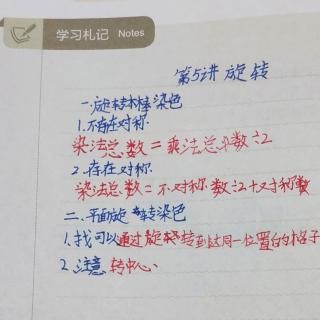 学习札记 Notes
第5讲 旋转
一.旋转木棒染色
1.不存在对称
染法总数=乘法总个数÷2
2.存在对称
染法总数=不对称数÷2+对称数
二、平面旋转染色
1.找可以通过旋转到达同一位置的格子
2.注意转中心.